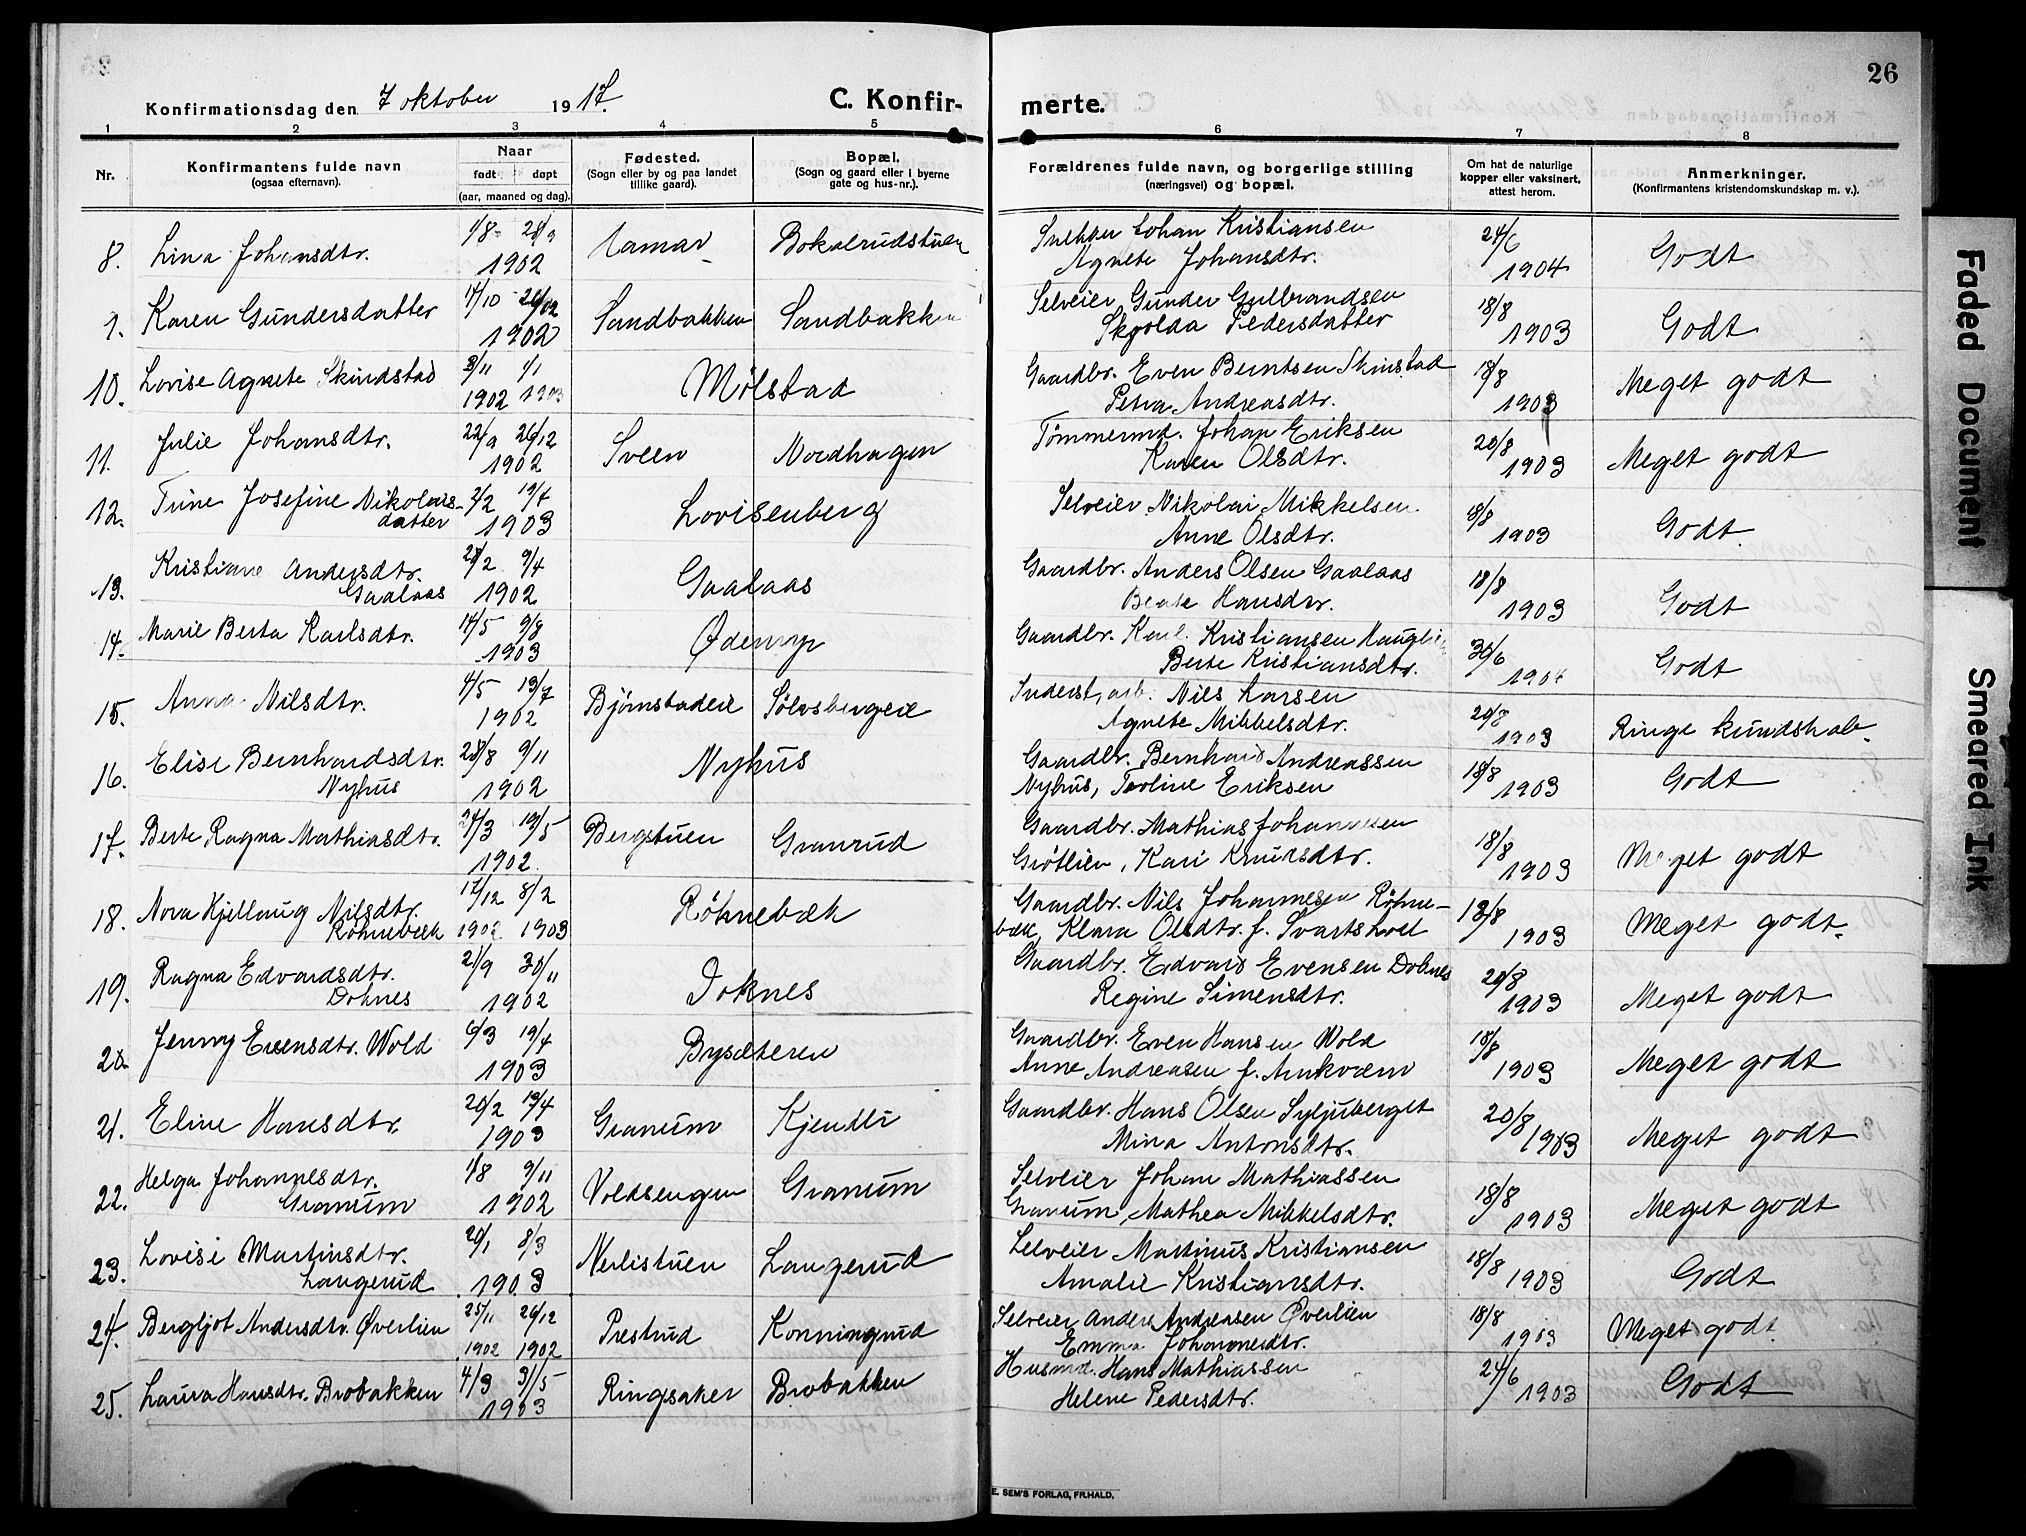 26
Konfirmationsdag den 7 oktober 1917.
C. Konfirmerte.
1 2 3 4 5 6 7 8
Nr.
Konfirmantens fulde navn
(ogsaa efternavn).
Naar
født døpt
(aar, maaned og dag).
Fødested.
(Sogn eller by og paa landet
tillike gaard).
Bopæl.
(Sogn og gaard eller i byerne
gate og hus-nr.).
Forældrenes fulde navn, og borgerlige stilling
(næringsvei) og bopæl.
Om hat de naturlige
kopper eller vaksinert,
attest herom.
Anmerkninger.
(Konfirmantens kristendomskundskap m. v.).
8. Lina Johansdtr. 1/8 1902 Hamar Bokalrudstuen Snekker Johan Kristiansen
Agnete Johansdtr. 24/6 1904 Godt
Karen Gundersdatter 14/10 1902 Sandbakken Sandbakken Selveier Gunder Gulbrandsen
Skjolda Pedersdatter 18/8 1903 Godt
10. Lovise Agnete Skindstad 3/11 1902 4/1 1903 Mølstad Gaardbr. Even Berntsen Skinstad
Petra Andreasdtr. 18/8 1903 Meget godt
11. Julie Johansdtr. 22/9 26/12 1902 Sveen Nordhagen Tømmermd. Johan Eriksen
Karen Olsdtr. 20/8 1903 Meget godt
12. Trine Josefine Nikolais-
datter 2/2 19/4 1903 Lovisenberg Selveier Nikolai Mikkelsen
Anne Olsdtr. 18/8 1903 Godt
13. Kristiane Andersdtr.
Gaalaas 9/4 1902 Gaalaas Gaardbr. Anders Olsen Gaalaas
Beate Hansdtr. 18/8 1903 Godt
14. Marie Berta Karlsdtr. 14/5 9/8 1903 Gaardbr. Karl Kristiansen Hauglien
Berte Kristiansdtr. 30/6 1904 Godt
15. Anna Nilsdtr. 4/5 13/7 1902 Bjørnstadeie Sølvsbergeie Inderst, arb. Nils Larsen
Agnete Mikkelsdtr. 20/8 1903 Ringe kundskab.
16. Elise Bernhardsdtr.
Nyhus 28/8 9/11 1902 Nyhus Gaardbr. Bernhard Andreassen
Nyhus, Teoline Eriksen 18/8 1903 Godt
17. Berte Ragna Mathiasdtr. 24/3 19/5 1902 Bergstuen Granrud Gaardbr. Mathias Johannesen
Grøtlien, Kari Knudsdtr. 18/8 1903 Meget godt
18. Nora Kjellaug Nilsdtr.
Røhnebæk 17/12 1902 8/2 1903 Røhnebæk Gaardbr. Nils Johannesen Røhne-
bæk, Klara Olsdtr. f. Svartshoel 18/8 1903 Meget godt.
19. Ragna Edvardsdtr.
Doknes 21/9 30/11 1902 Doknes Gaardbr. Edvard Evensen Doknes
Regine Simensdtr. 20/8 1903 Meget godt
20. Jenny Evensdtr. Wold 6/3 19/4 1903 Bysæteren Gaardbr. Even Hansen Wold
Anne Andreasen f. Arnkværn 18/8 1903 Meget godt
21. Eline Hansdtr. 20/2 19/4 1903 Granum Kjendli Gaardbr. Hans Olsen Syljuberget
Mina Antonsdtr. 20/8 1903 Meget godt
22. Helga Johannesdtr.
Granum 1/8 9/11 1902 Voldsengen Granum Selveier Johan Mathiassen
Granum, Mathea Mikkelsdtr. 18/8 1903 Meget godt
23. Lovise Martinsdtr.
Langerud 20/1 8/3 1903 Nerlistuen Langerud Selveier Martinus Kristiansen
Amalie Kristiansdtr. 18/8 1903 Godt
24. Bergljot Andersdtr. Øverlien 25/11 1902 26/12 1902 Prestrud Konningrud Selveier Anders Andreasen Øverlien
Emma Johannesdtr. 18/8 1903 Meget godt
25. Laura Hansdtr. Brobakken 4/3 31/5 1903 Ringsaker Brobakken Husmd. Hans Mathiassen
Helene Pedersdtr. 24/6 1903 Godt
E. SEM'S FORLAG, FR.HALD.
Faded Document
Smeared Ink